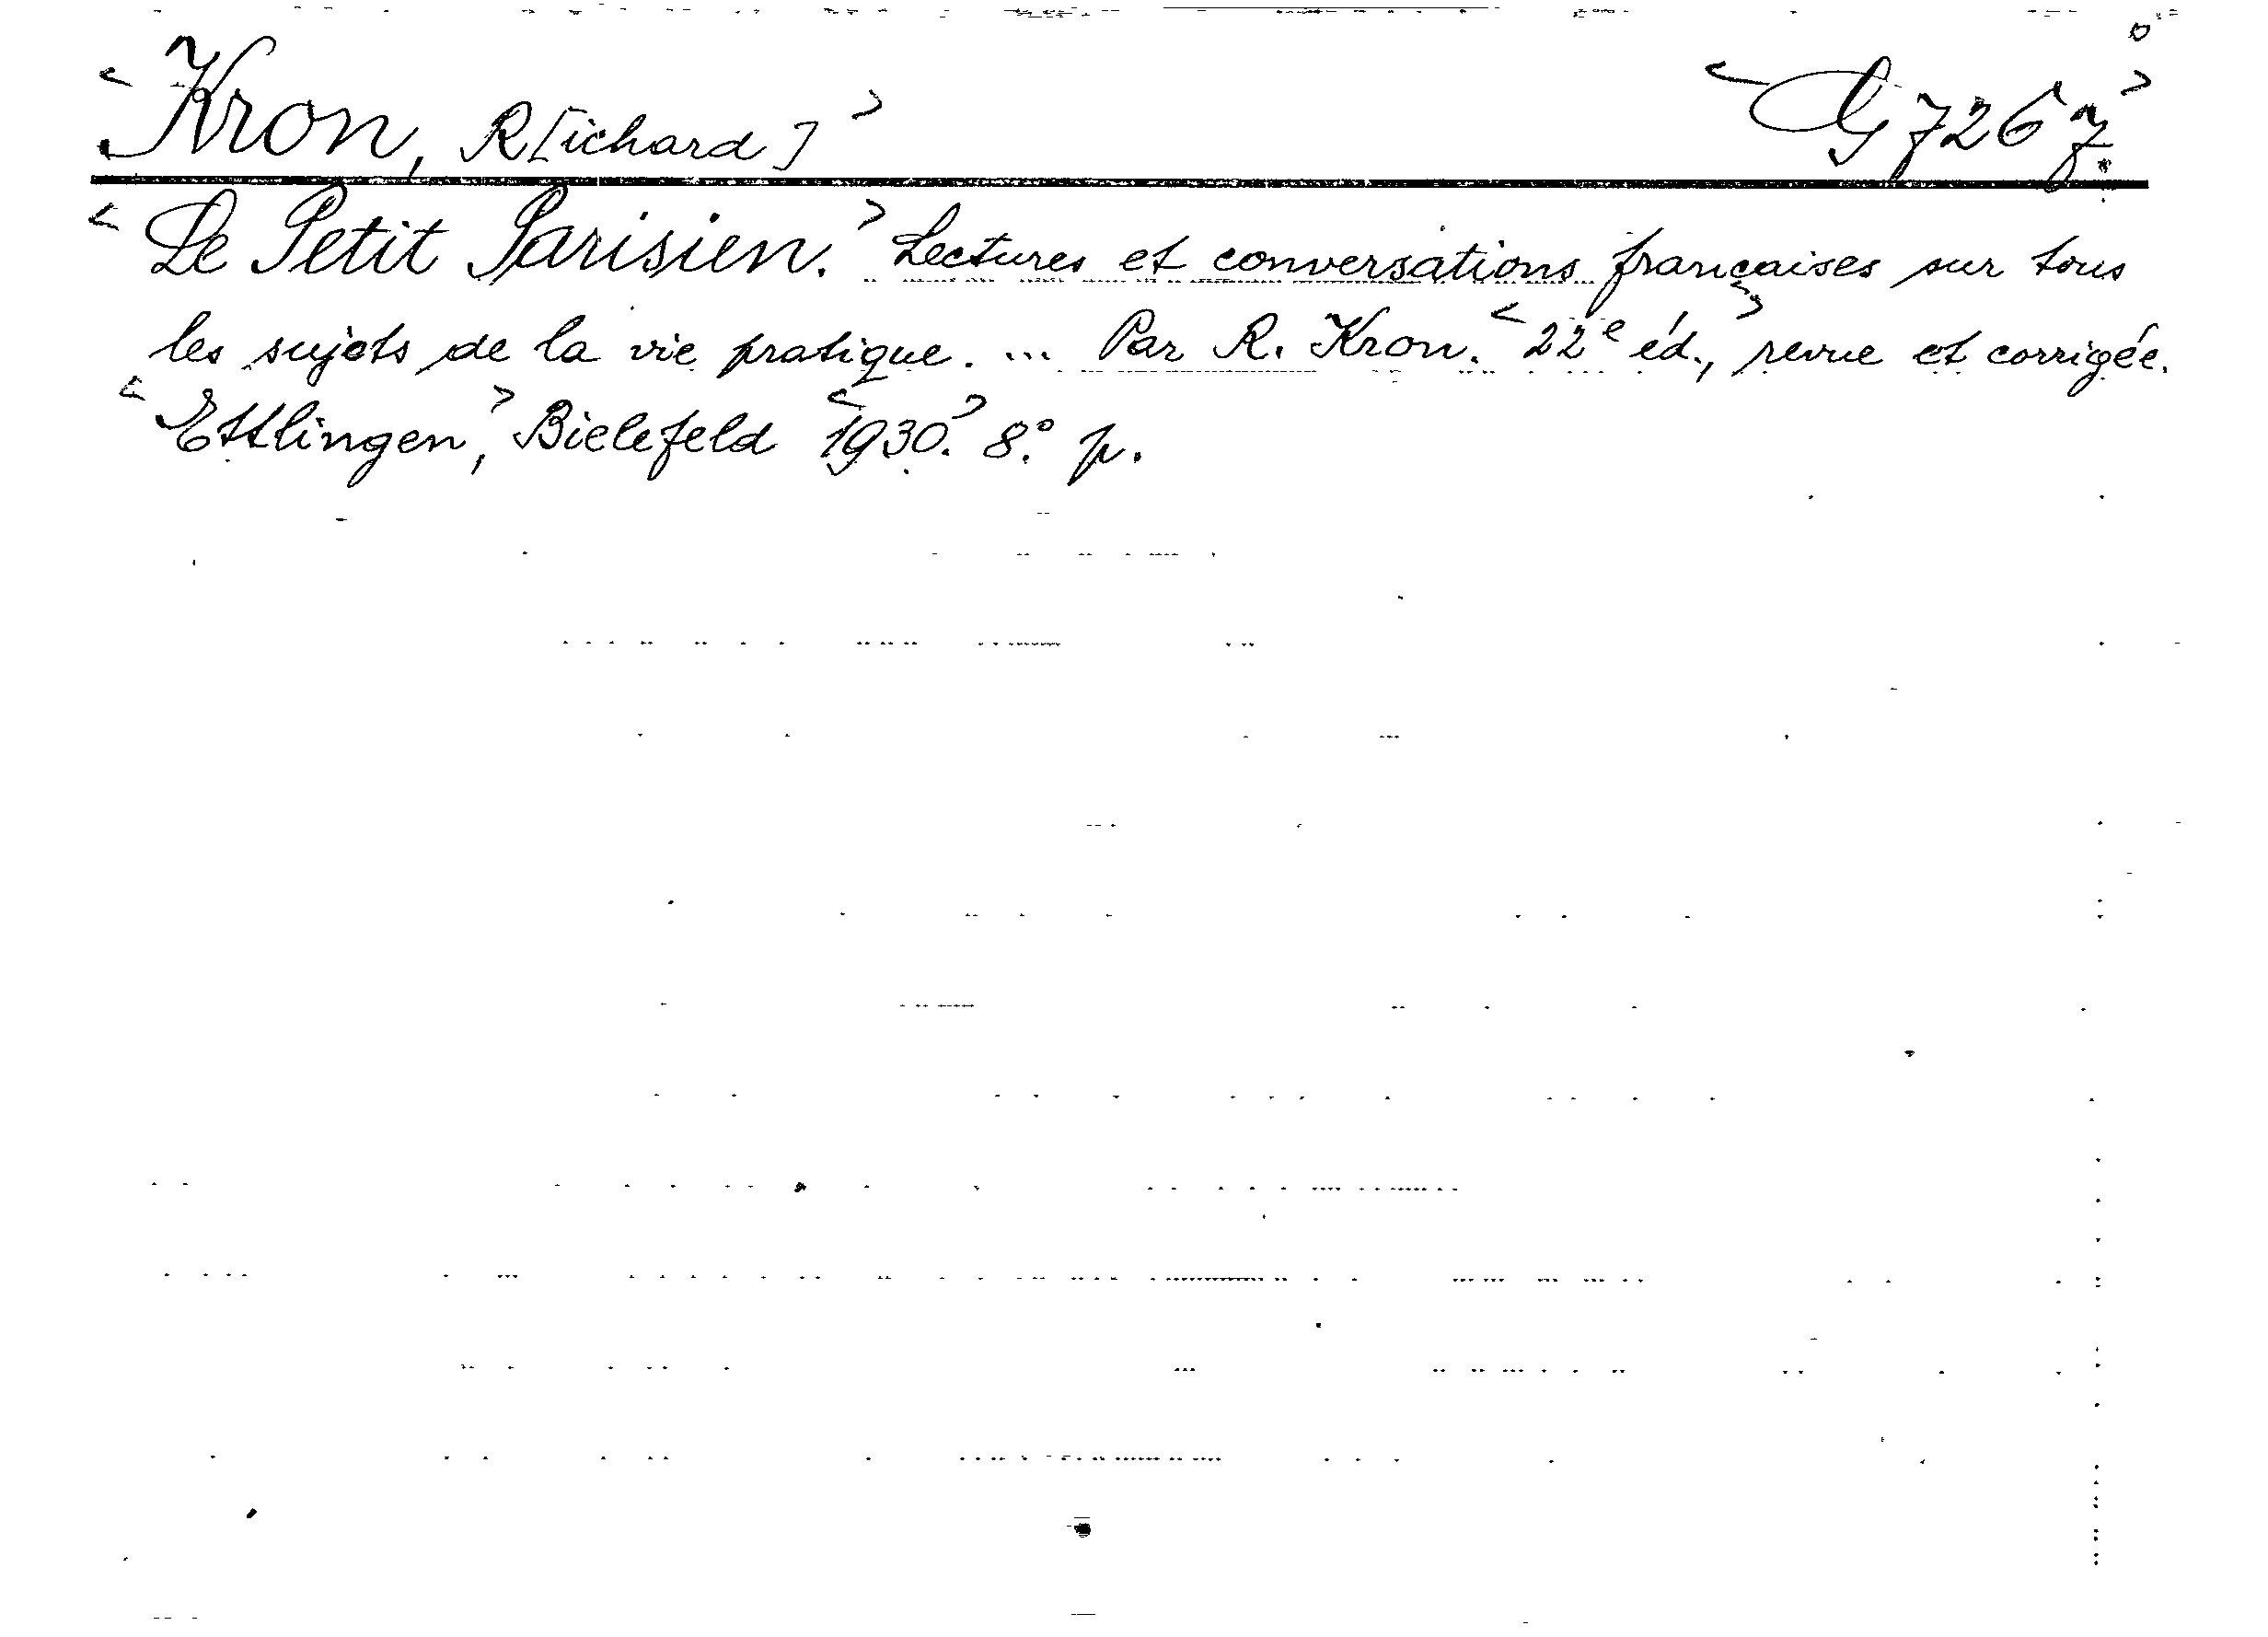 <Kron, R[ichard]> <G 7267.>
<Le Petit Parisien.> Lectures et conversations françaises sur tous
les sujets de la vie pratique. ... Par R. Kron. <22e éd.,> revue et corrigée.
<Ettlingen,> Bielefeld <1930.> 8.° p.